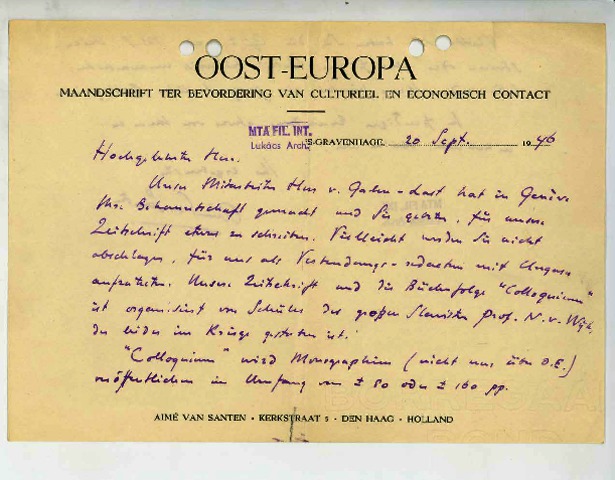 OOST-EUROPA
MAANDSCHRIFT TER BEVORDERING VAN CULTUREEL EN ECONOMISCH CONTACT
MTA FIL. INT.
Lukács Arch.
'S-GRAVENHAGE, 20 Sept. 1946
Hochgeehrter Herr.
Unser Mitarbeiter Herr v. hat in Genève
Ihre Bekanntschaft gemacht und Sie gebeten, für unsere
Zeitschrift etwas zu schreiben. Vielleicht werden Sie nicht
abschlagen, für uns als mit Ungarn
aufzutreten. Unsere Zeitschrift und die Bücherfolge "Colloquium"
ist organisiert von Schüler des großen Slavisten Prof. N. v. Wijk,
der leider im Kriege gestorben ist.
"Colloquium" wird Monographien (nicht nur über O.E.)
veröffentlichen im Umfang von ± 80 oder ± 160 pp.
AIMÉ VAN SANTEN · KERKSTRAAT 5 · DEN HAAG · HOLLAND